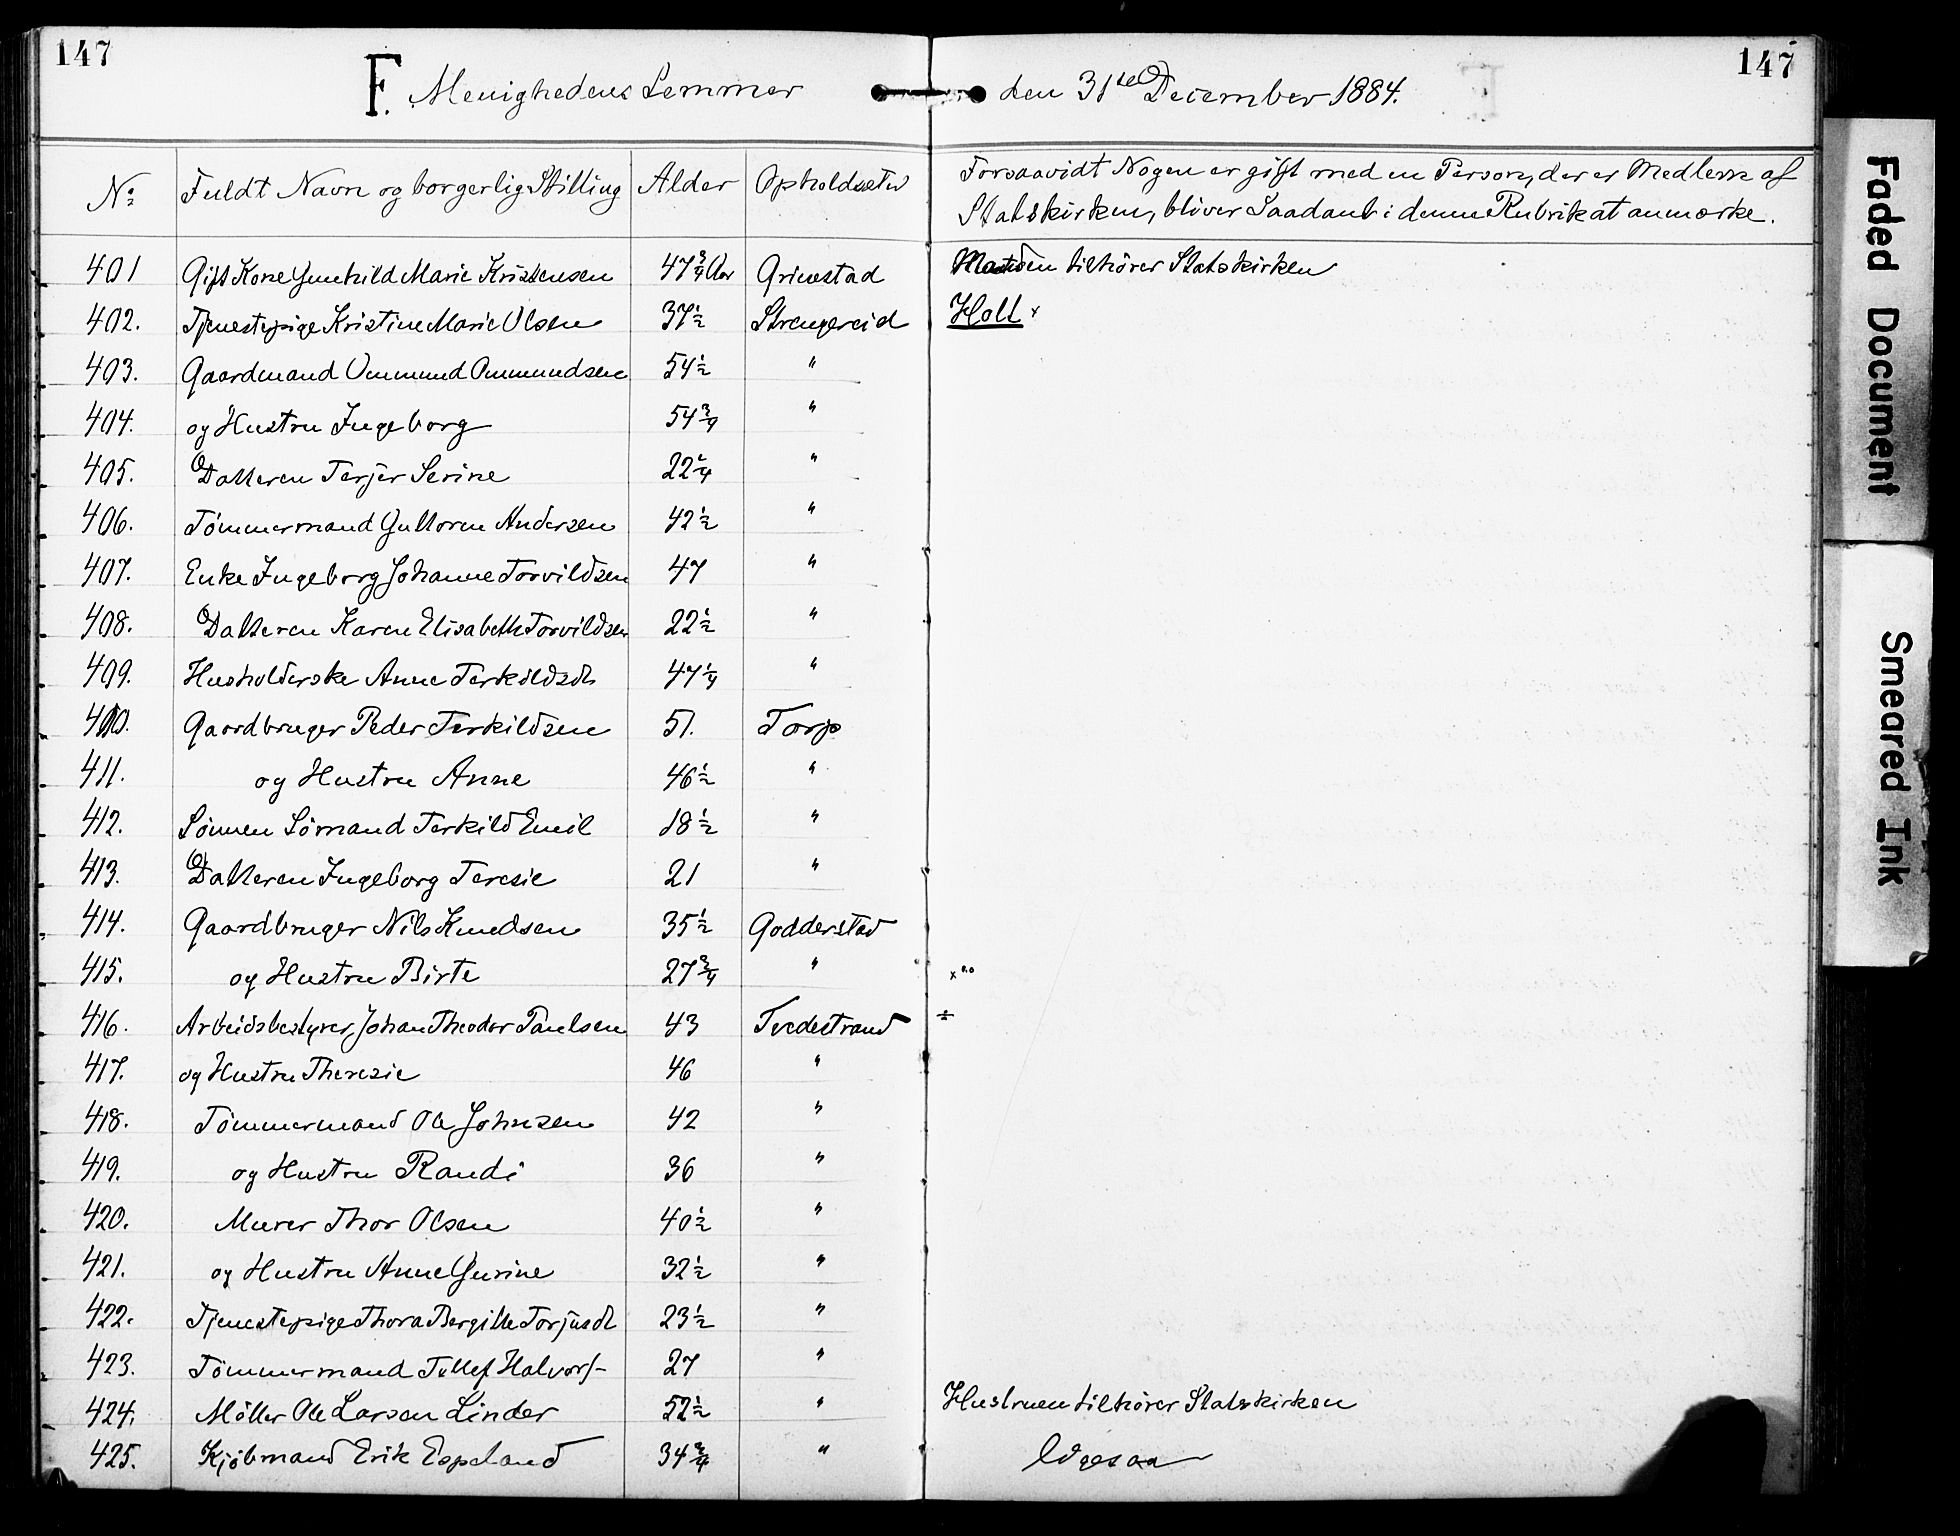 147
F. Menighedens Lemmer den 31te December 1884.
147
No Fuldt Navn og borgerlig Stilling Alder Opholdssted Forsaavidt Nogen er gift med en Person, der er Medlem af
Statskirken, bliver Saadant i denne Rubrik at anmærke.
401 Gift Kone Gunhild Marie Kristensen 47 3/4 Aar Grimstad Manden tilhører Statskirken
402. Tjenestepige Kristine Marie Olsen 37 1/2 Strengereid Holt x
403. Gaardmand Ommund Ommundsen 54 1/2 "
404. og Hustru Ingeborg 54 3/4 "
405. Datteren Terjer Serine 22 1/4 "
406. Tømmermand Guttorm Andersen 42 1/2 "
407. Enke Ingeborg Johanne Torvildsen 47 "
408. Datteren Karen Elisabeth Torvildsen 22 1/2 "
409. Husholderske Anne Terkildsdt 47 1/4 "
410. Gaardbruger Peder Terkildsen 51. Torp
411. og Hustru Anne 46 1/2 "
412. Sønnen Sømand Terkild Emil 18 1/2 "
413. Datteren Ingeborg Teresie 21 "
414. Gaardbruger Nils Knudsen 35 1/2 Godderstad
415. og Hustru Birte 27 3/4 "
416. Arbeidsbestyrer, Johan Theodor Paulsen 43 Tvedestrand ÷
417. og Hustru Theresie 46 "
418. Tømmermand Ole Johnsen 42 "
419. og Hustru Randi 36 "
420. Murer Thor Olsen 40 1/2 "
421. og Hustru Anne Gurine 32 1/2 "
422. Tjenestepige Thora Bergitte Torjusdt 23 1/2 "
423. Tømmermand Tellef Halvors- 27 "
424. Møller Ole Larsen Linder 52 1/2 " Hustruen tilhører Statskirken
425. Kjøbmand Erik Espeland 34 3/4 " Ligesaa
Faded Document
Smeared Ink